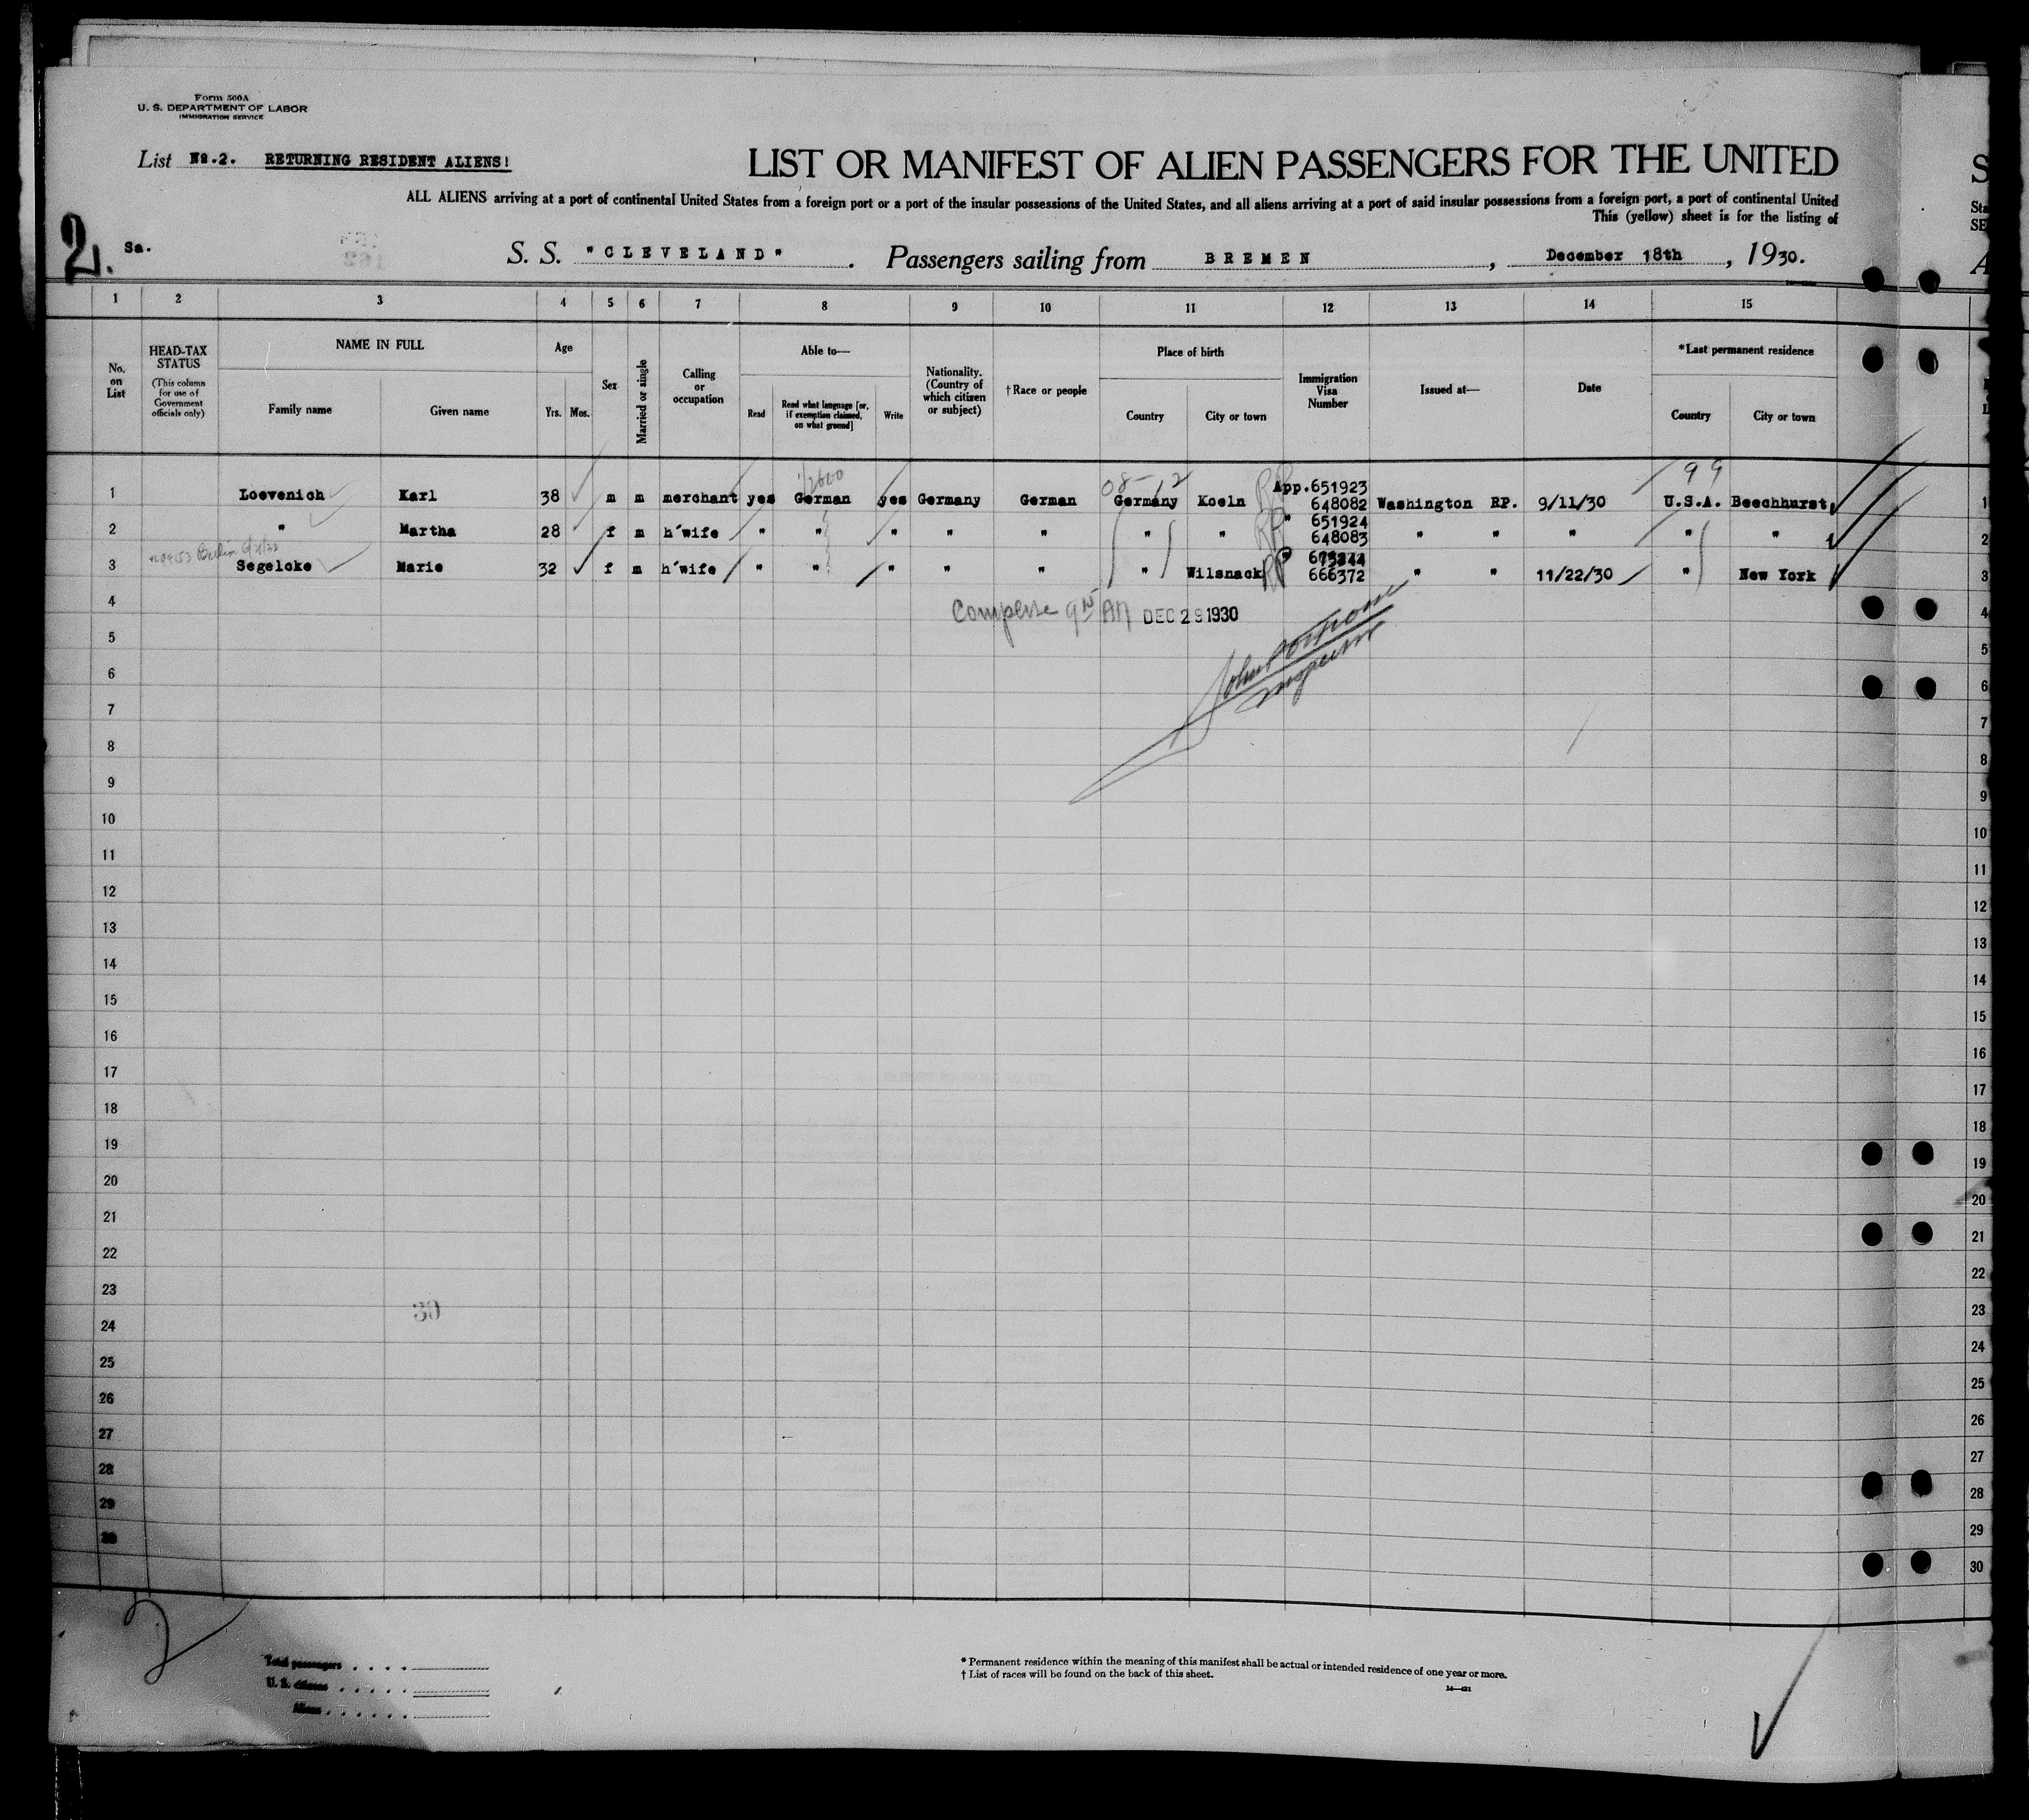 Form 500A
U. S. DEPARTMENT OF LABOR
IMMIGRATION SERVICE
List No.2. RETURNING RESIDENT ALIENS!
LIST OR MANIFEST OF ALIEN PASSENGERS FOR THE UNITED
ALL ALIENS arriving at a port of continental United States from a foreign port or a port of the insular possessions of the United States, and all aliens arriving at a port of said insular possessions from a foreign port, a port of continental United
This (yellow) sheet is for the listing of
2. Sa. S. S. "CLEVELAND" . Passengers sailing from BREMEN , December 18th , 1930.
1 2 3 4 5 6 7 8 9 10 11 12 13 14 15
No. on List
HEAD-TAX STATUS
(This column for use of Government officials only)
NAME IN FULL
Family name Given name
Age
Yrs. Mos.
Sex
Married or single
Calling or occupation
Able to—
Read
Read what language [or, if exemption claimed, on what ground]
Write
Nationality. (Country of which citizen or subject)
†Race or people
Place of birth
Country City or town
Immigration Visa Number
Issued at—
Date
*Last permanent residence
Country City or town
08-12 99
1 Loevenich Karl 38 m m merchant yes German yes Germany German Germany Koeln RP App.651923 648082 Washington RP. 9/11/30 U.S.A. Beechhurst, 1
2 " Martha 28 f m h'wife " " " " " " " RP " 651924 648083 " " " " " 2
3 Segelcke Marie 32 f m h'wife " " " " " " Wilsnack RP " 666372 " " 11/22/30 " New York 3
4 DEC 29 1930 4
John
Inspector
5 5
6 6
7 7
8 8
9 9
10 10
11 11
12 12
13 13
14 14
15 15
16 16
17 17
18 18
19 19
20 20
21 21
22 22
23 23
24 24
25 25
26 26
27 27
28 28
29 29
30 30
2
Total passengers . . . .
U. S. citizens . . . . .
Aliens . . . . . .
* Permanent residence within the meaning of this manifest shall be actual or intended residence of one year or more.
† List of races will be found on the back of this sheet.